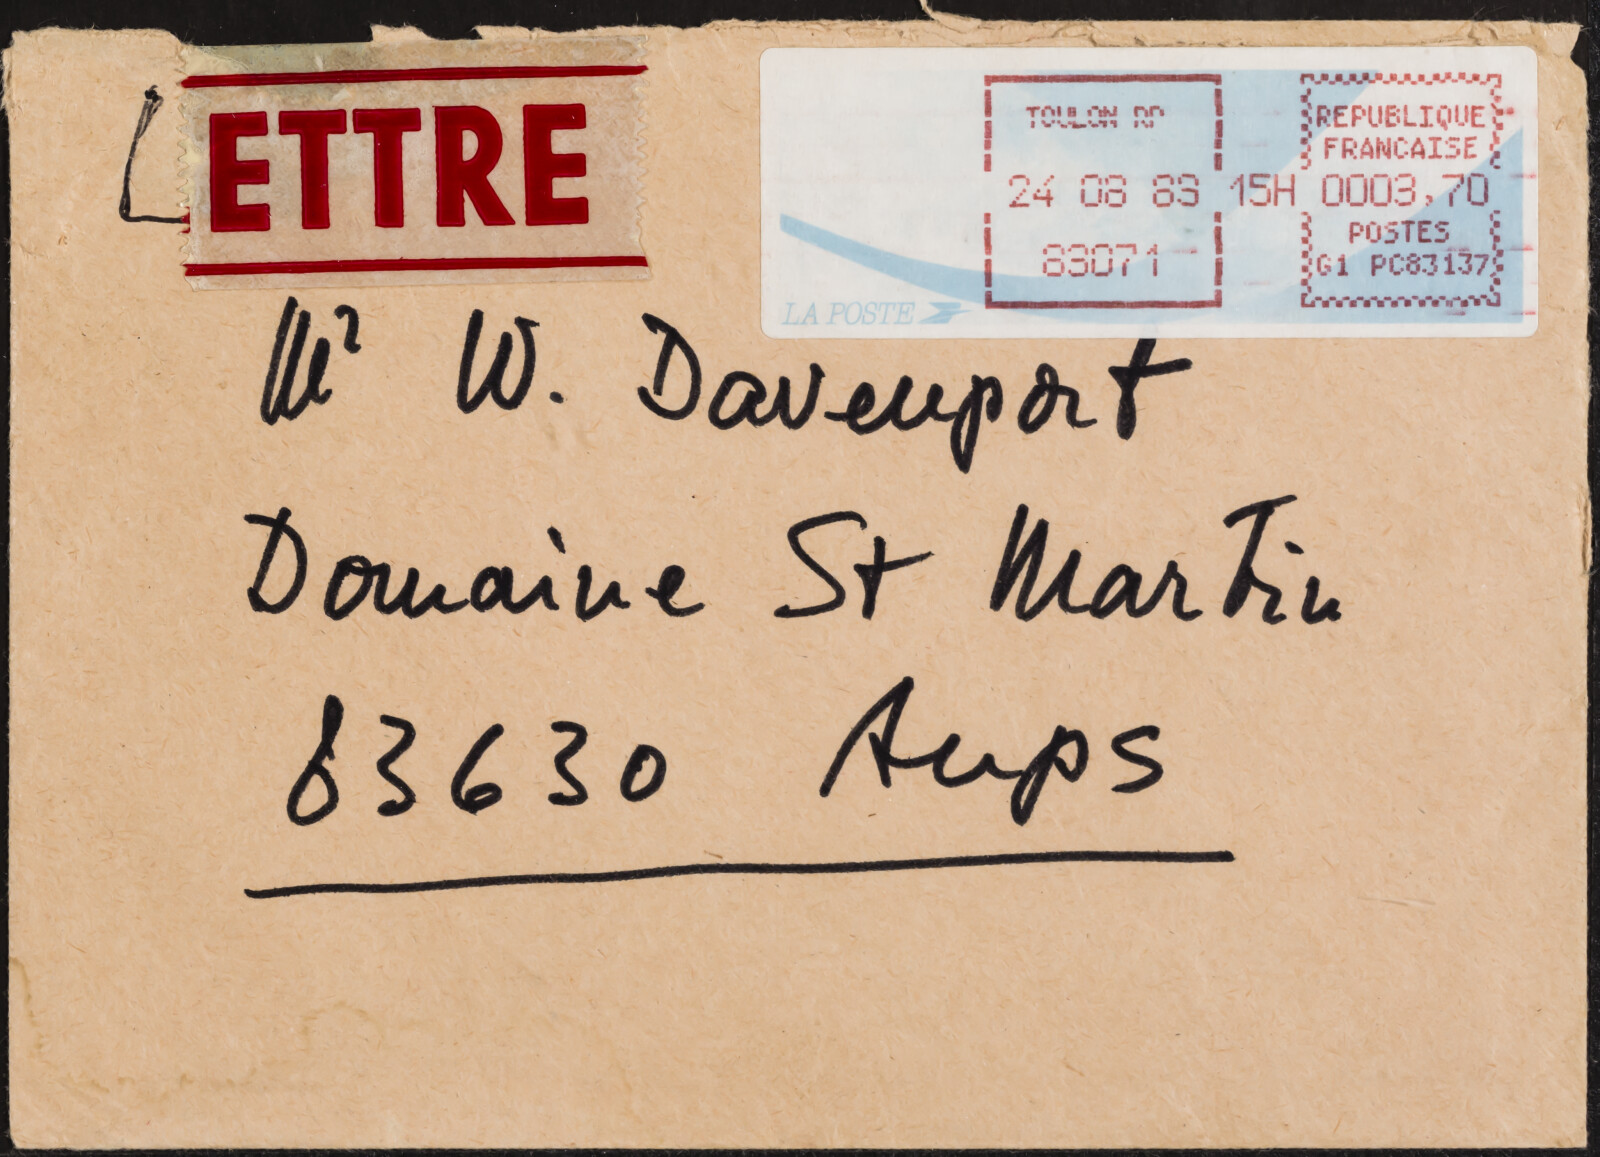 LETTRE
TOULON RP
24 08 89 15H
83071
REPUBLIQUE
FRANCAISE
0003,70
POSTES
G1 PC83137
LA POSTE
Mr W. Davenport
Domaine St Martin
83630 Aups